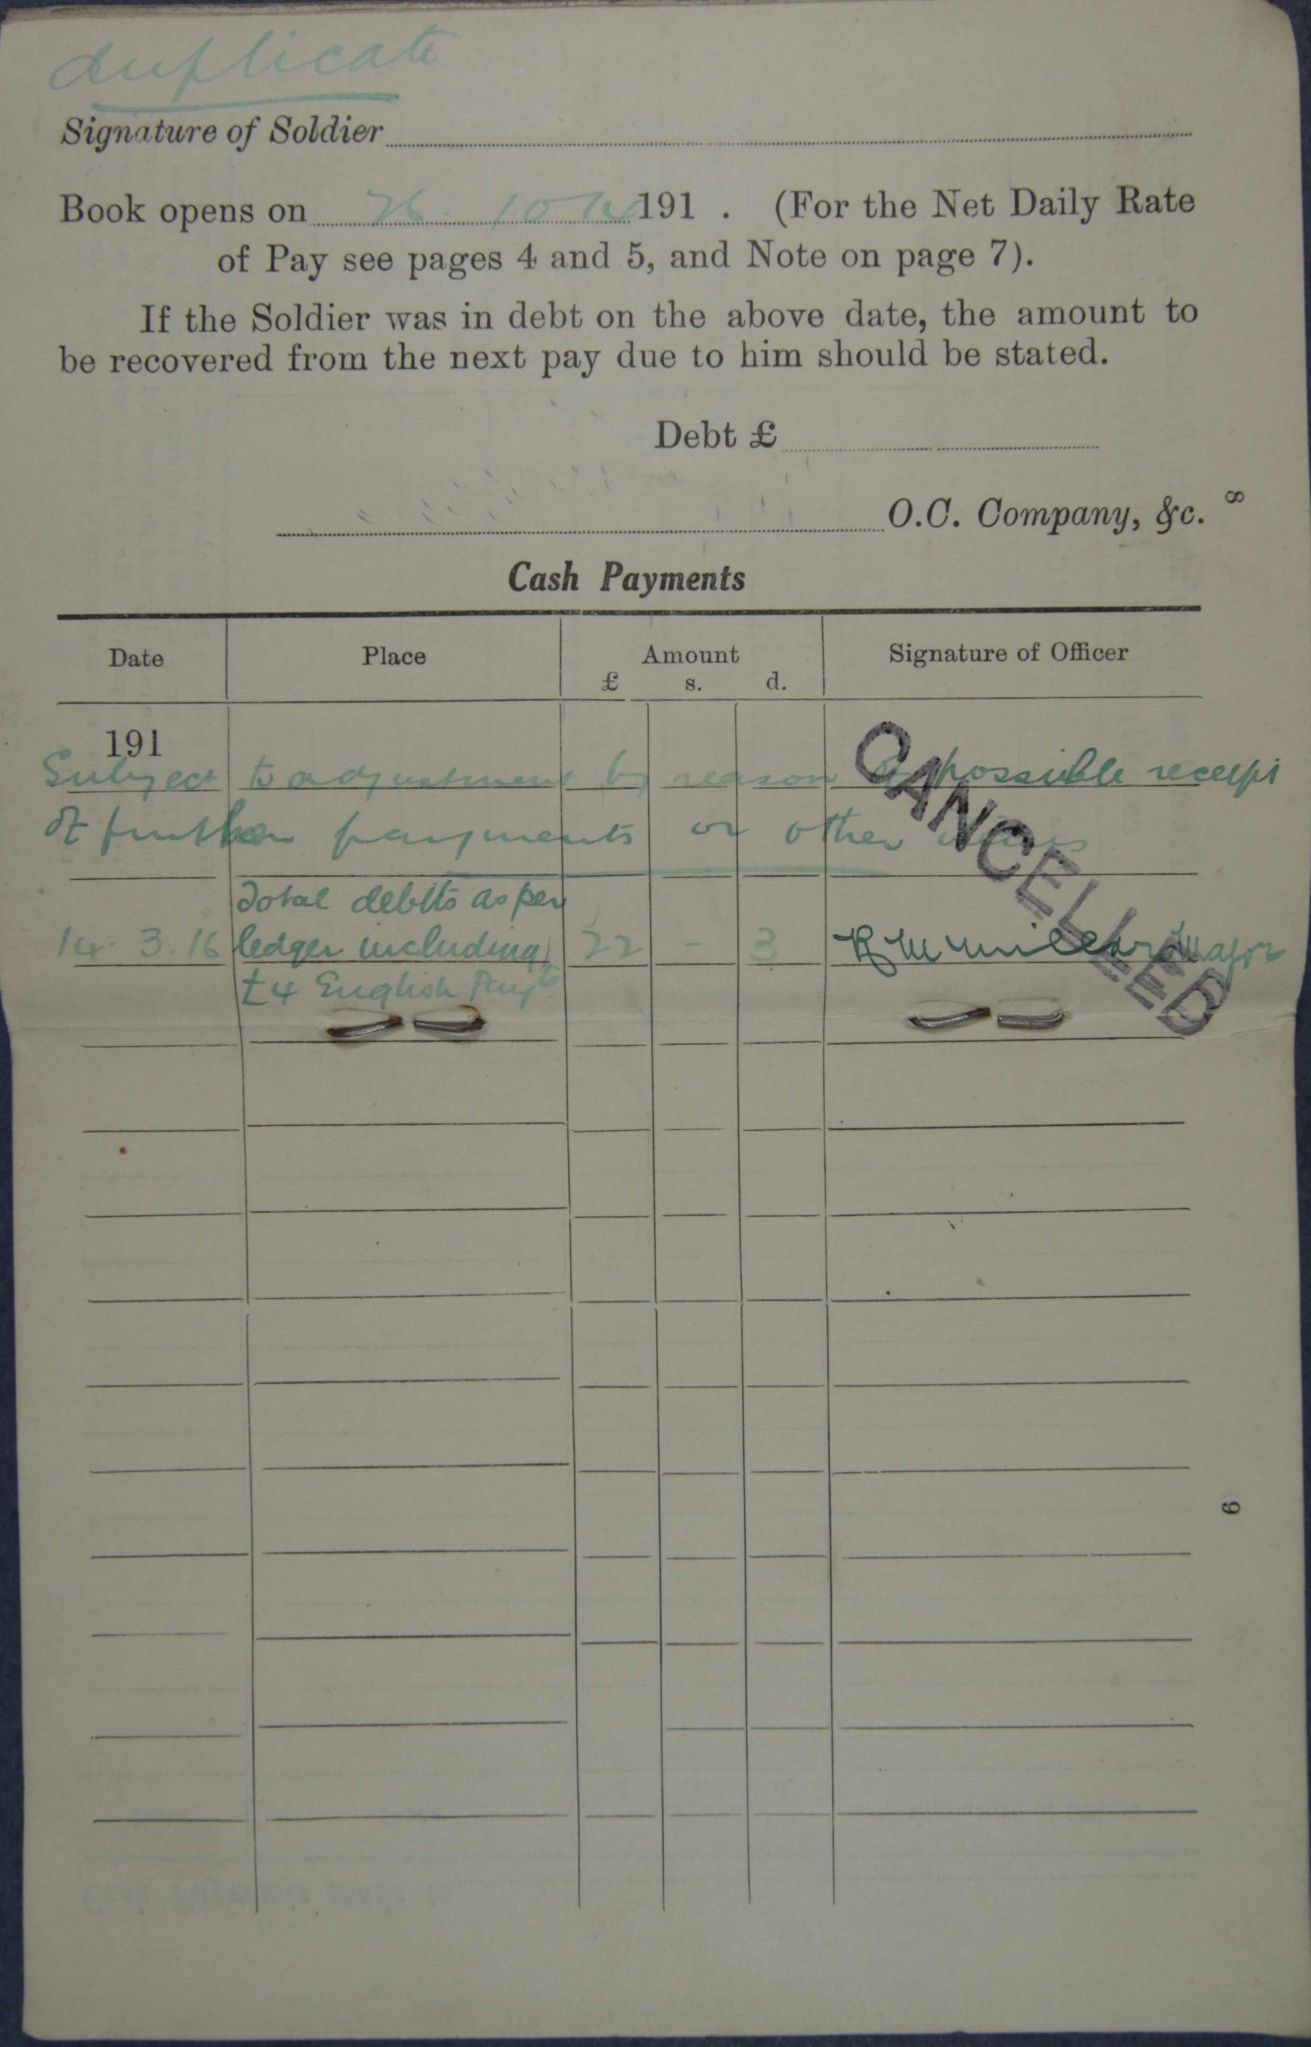 duplicate
Signature of Soldier
Book opens on 26. 10 191 . (For the Net Daily Rate
of Pay see pages 4 and 5, and Note on page 7).
If the Soldier was in debt on the above date, the amount to
be recovered from the next pay due to him should be stated.
Debt £
O.C. Company, &c.
8
Cash Payments
Date Place Amount Signature of Officer
£ s. d.
191
Subject to adjustment by reason of possible receipt
of further payments or other
CANCELLED
Total debits as per
14. 3. 16 ledger including 22 - 3 Major
£4 English Payt
6